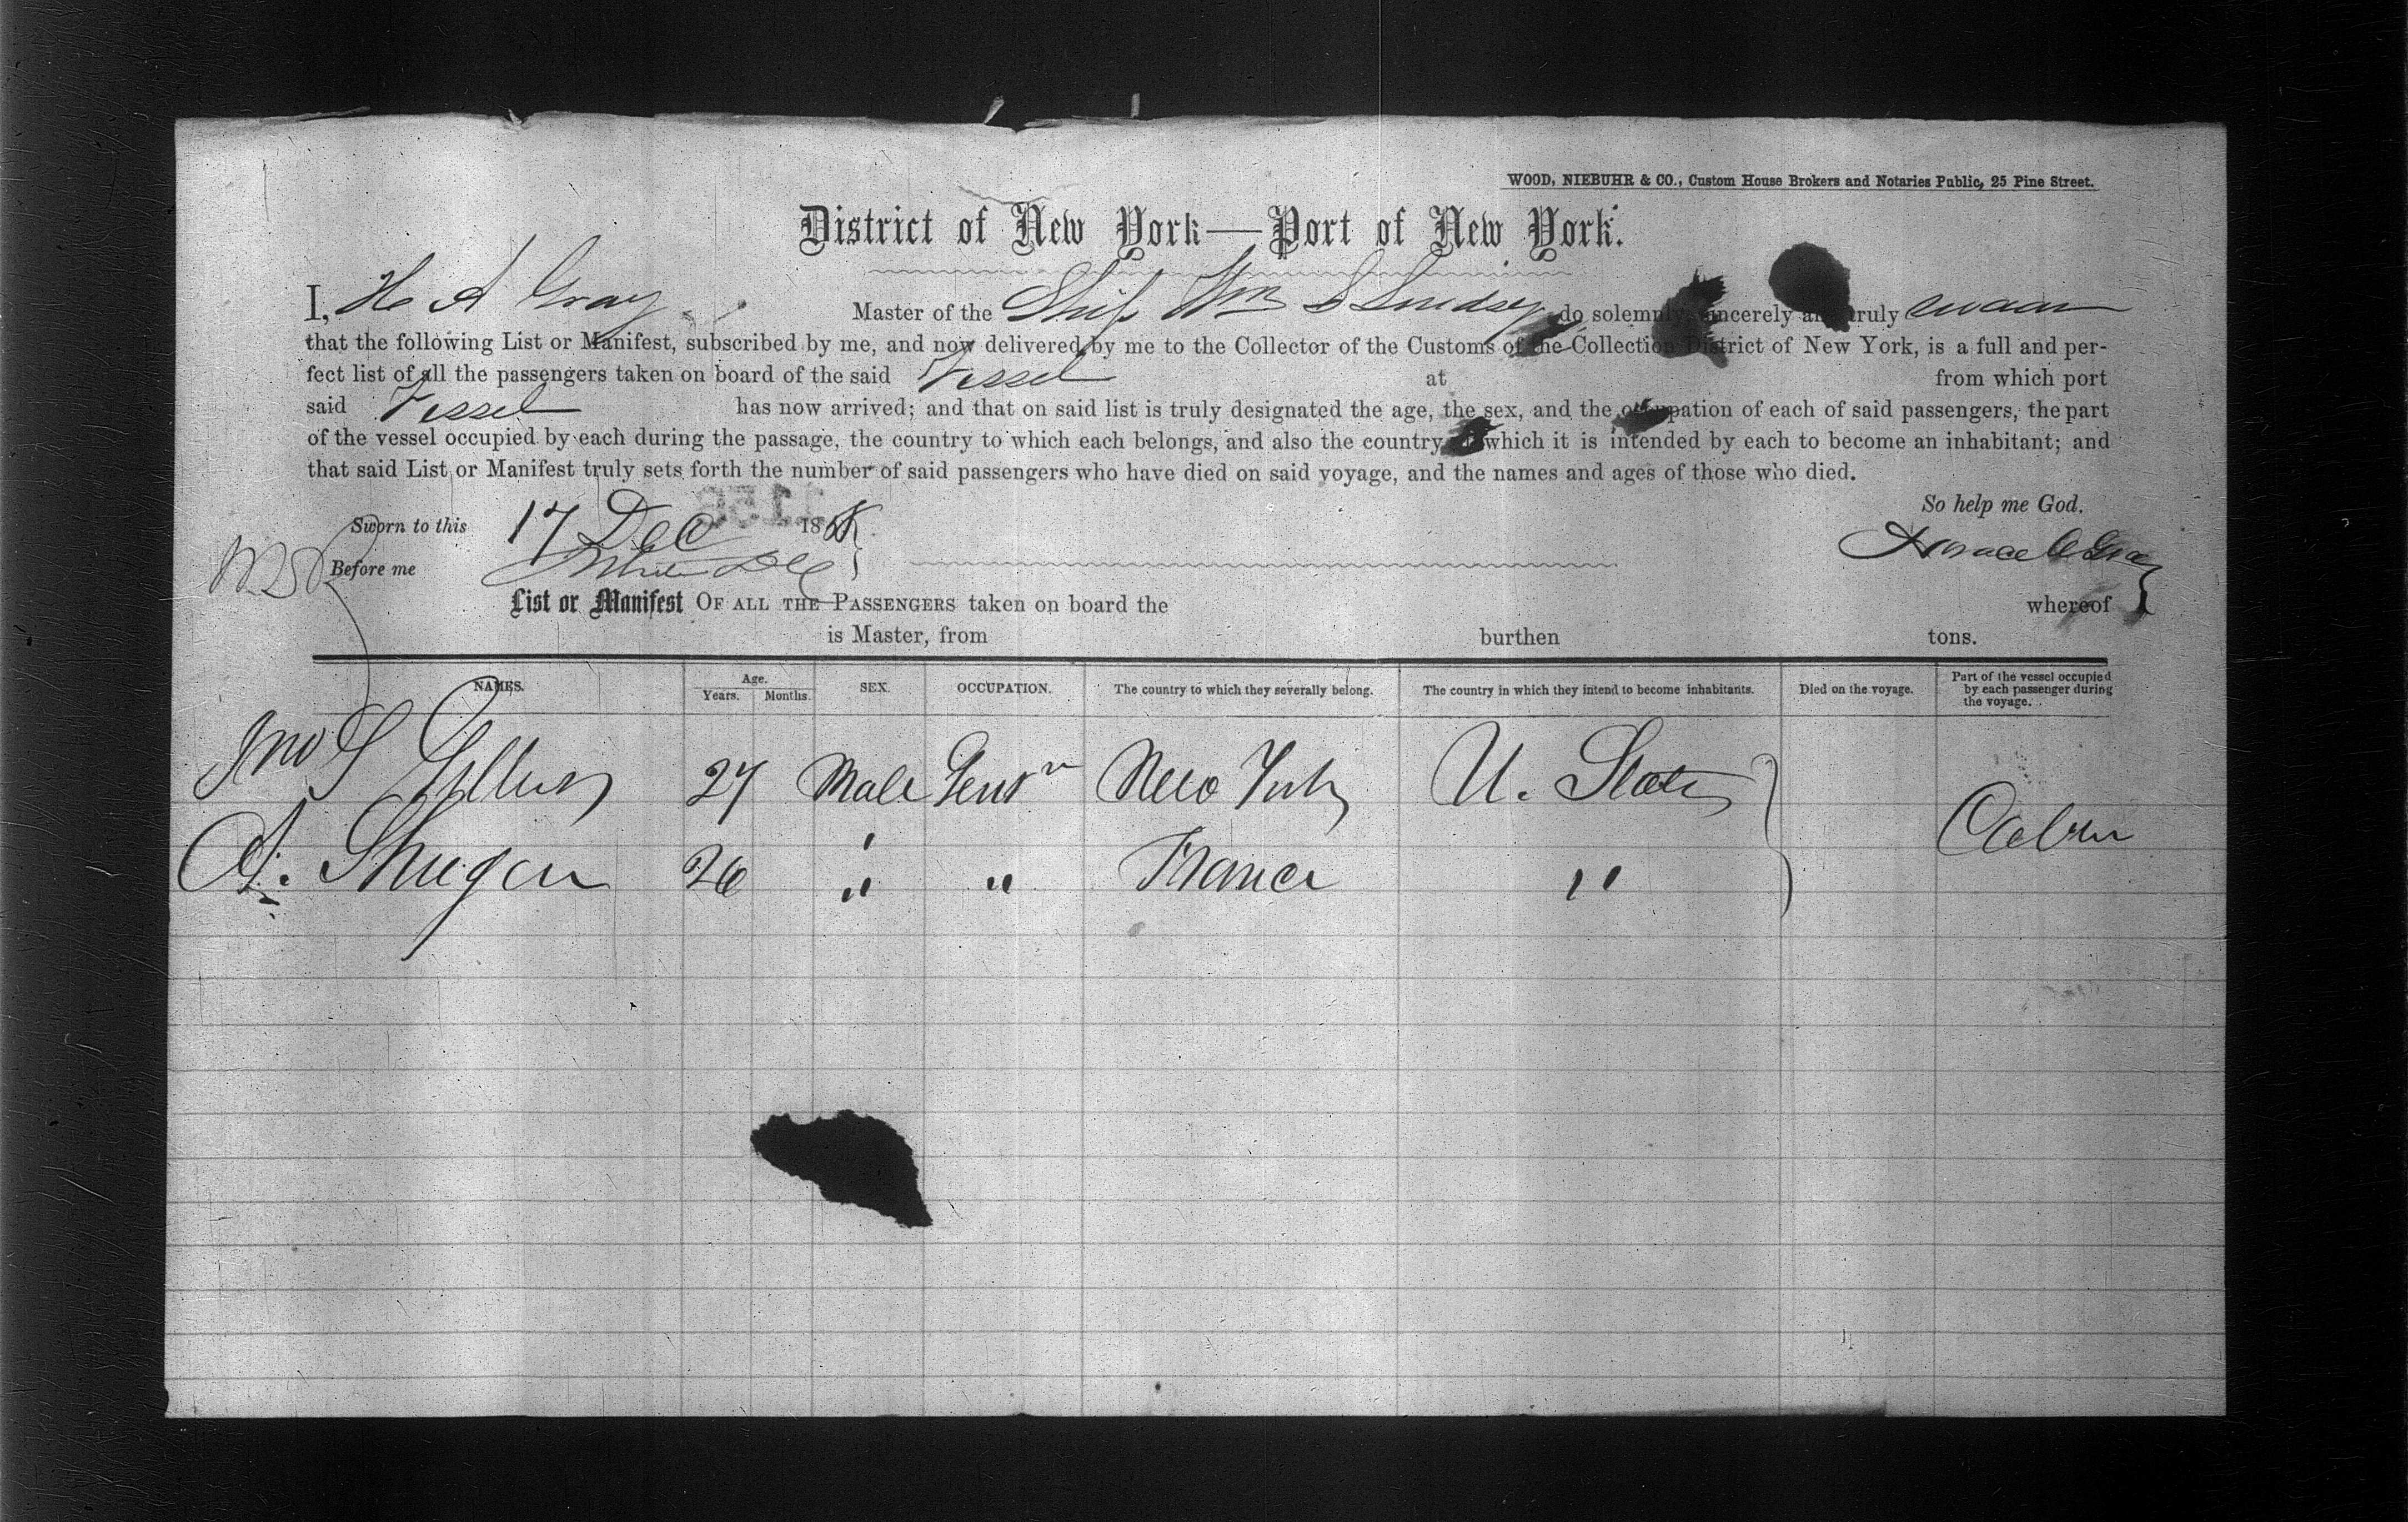 WOOD, NIEBUHR & CO., Custom House Brokers and Notaries Public, 25 Pine Street.
District of New York—Port of New York.
I, H A Gray Master of the Ship Wm S Lindsey do solemnly, sincerely and truly swear
that the following List or Manifest, subscribed by me, and now delivered by me to the Collector of the Customs of the Collection District of New York, is a full and per-
fect list of all the passengers taken on board of the said Vessel at from which port
said Vessel has now arrived; and that on said list is truly designated the age, the sex, and the occupation of each of said passengers, the part
of the vessel occupied by each during the passage, the country to which each belongs, and also the country which it is intended by each to become an inhabitant; and
that said List or Manifest truly sets forth the number of said passengers who have died on said voyage, and the names and ages of those who died.
So help me God.
Sworn to this 17 Dec 186
Horace A Gray
Before me
List or Manifest OF ALL THE PASSENGERS taken on board the whereof
is Master, from burthen tons.
NAMES. Age. Years. Months. SEX. OCCUPATION. The country to which they severally belong. The country in which they intend to become inhabitants. Died on the voyage. Part of the vessel occupied by each passenger during the voyage.
Jno S 27 Male Gentn New York U. States
Cabin
A. 26 " " France "